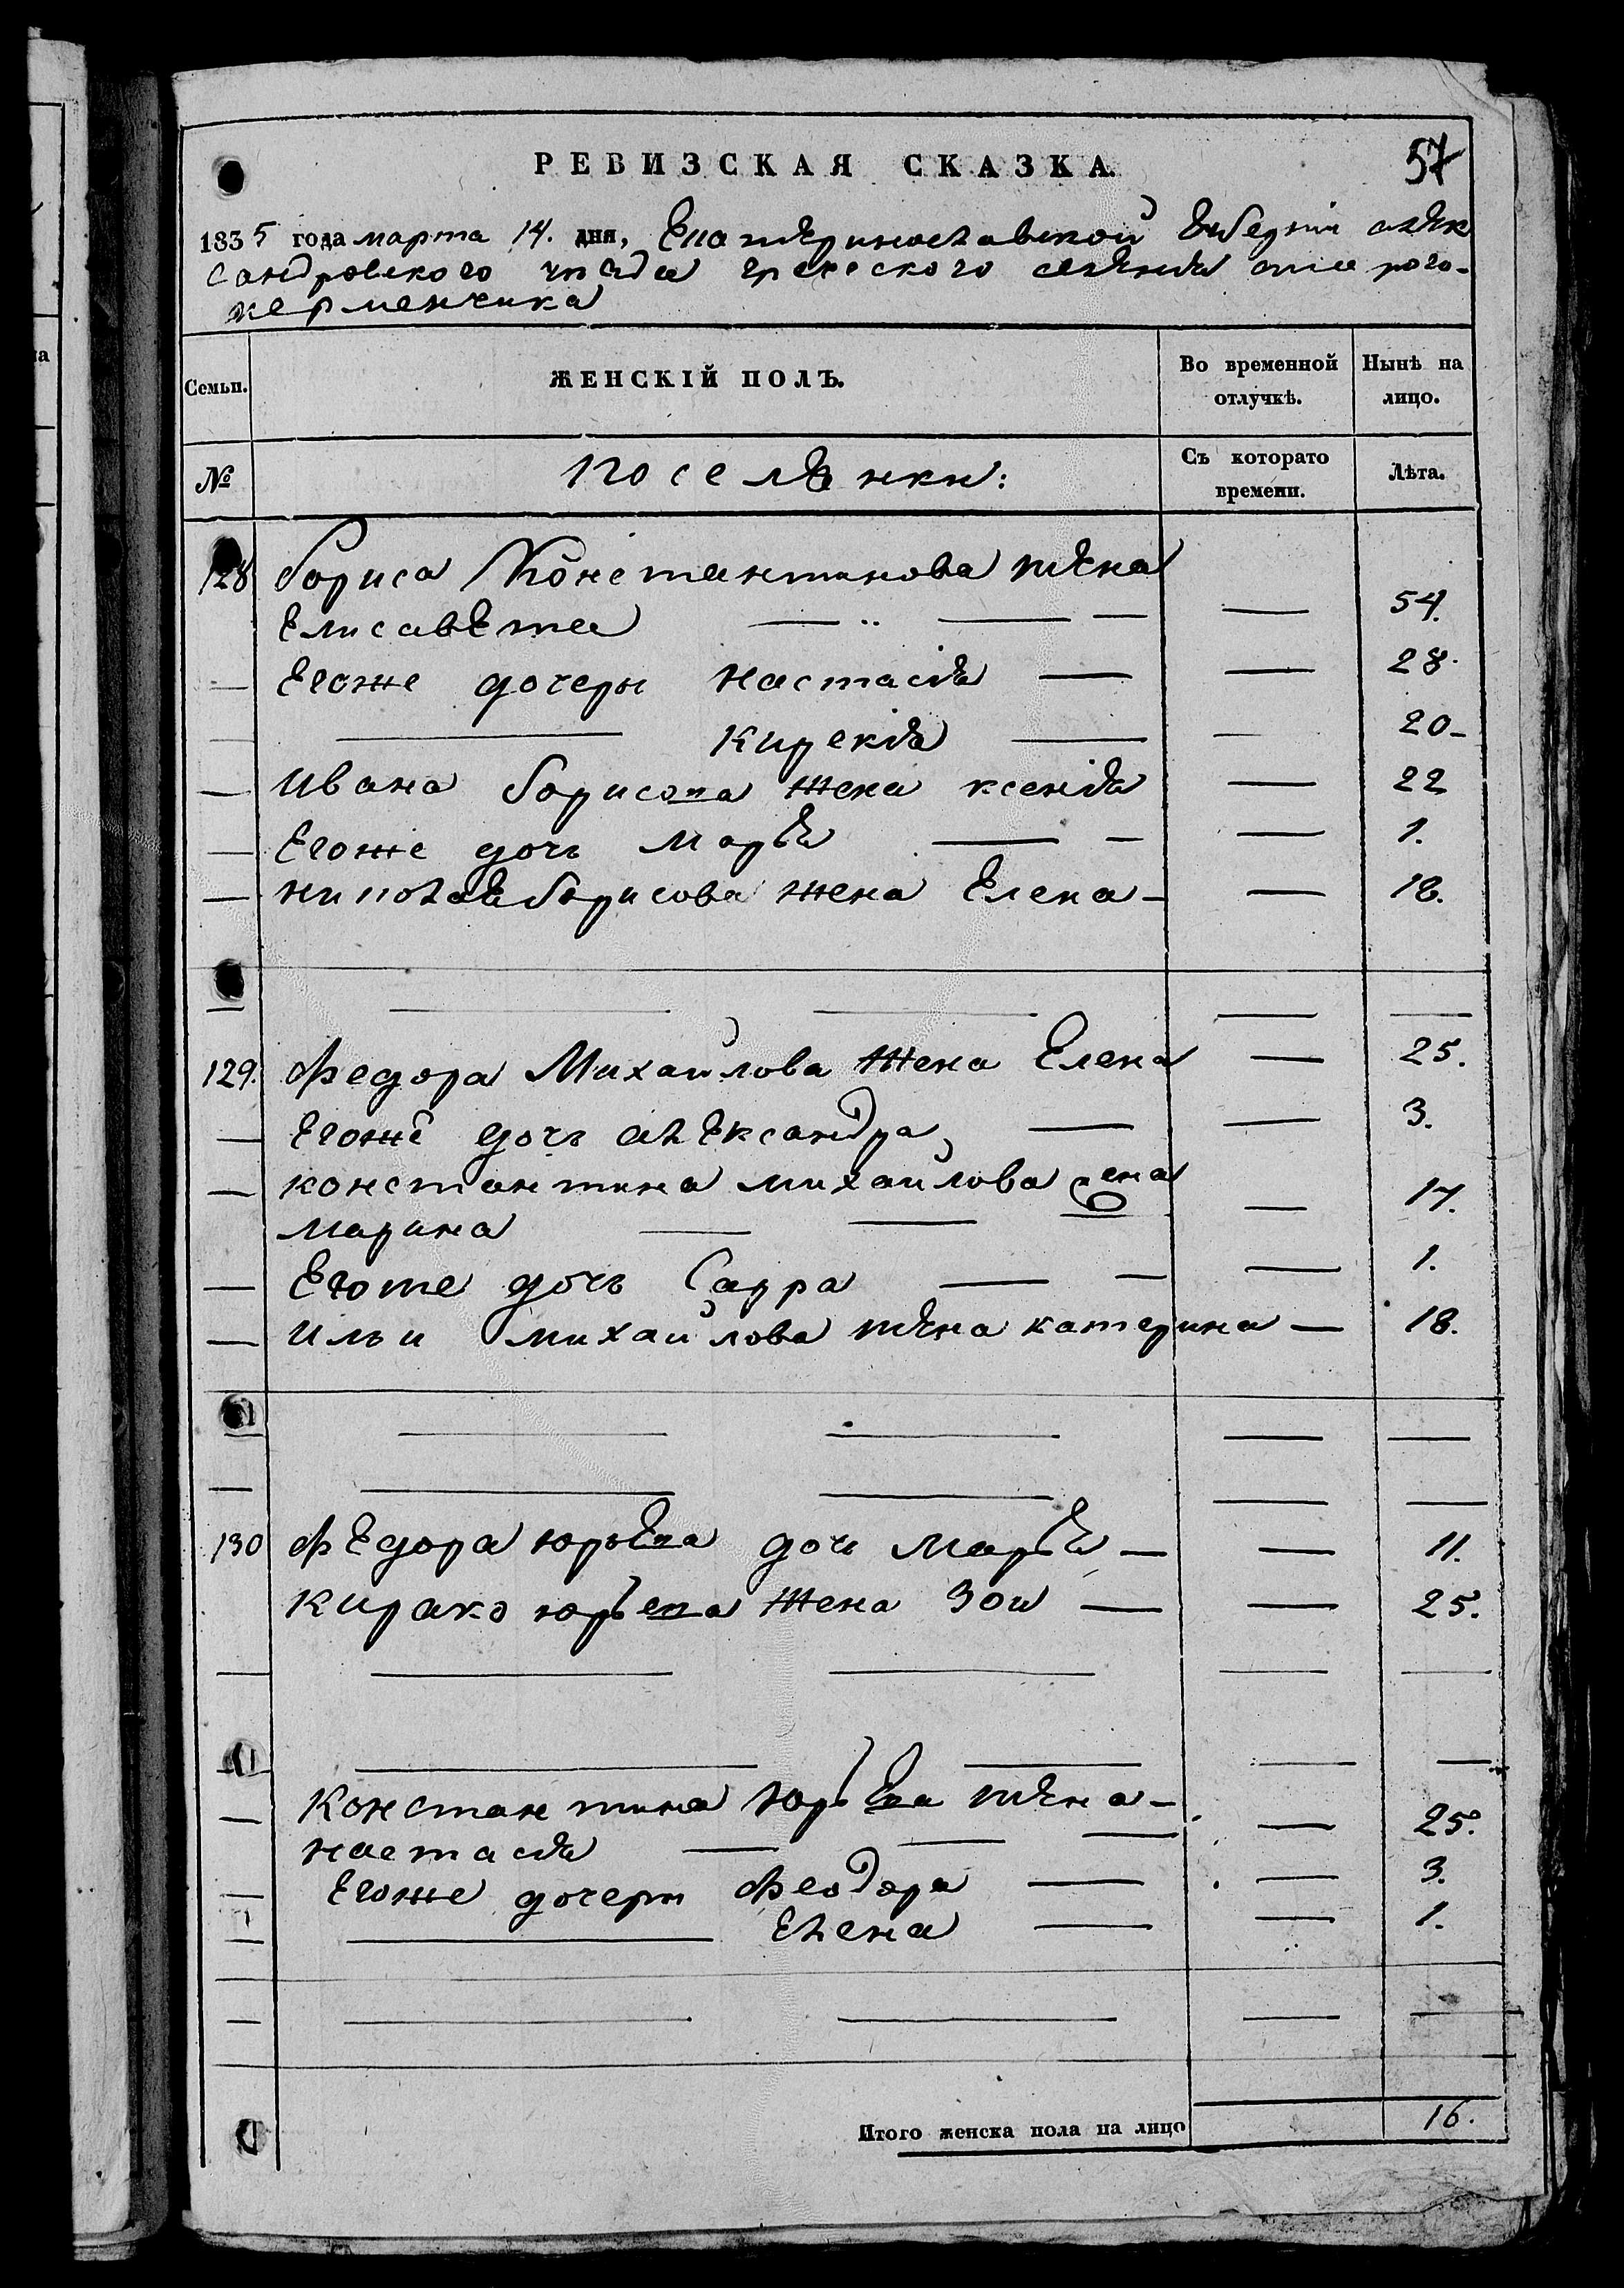 РЕВИЗСКАЯ СКАЗКА.
57
1835 года марта 14. дня, Екатеринославской губернии алек
сандровского уезда греческого селения старого-
керменчика
Семьи.
ЖЕНСКІЙ ПОЛЪ.
Во временной отлучкѣ.
Нынѣ на лицо.
№
поселянки:
Съ которато времени.
Лѣта.
128 бориса Константинова жена
Елисавета — 54.
— Егоже дочери настасия — — 28.
— — кирекия — — 20-
— Ивана борисова жена ксения — 22
— Егоже дочь Марья — — 1.
— борисова жена Елена - — 18.
— — — — —
129. федора Михайлова жена Елена — 25.
— Егоже дочь александра, — — 3.
— константина михайлова жена
марина — — — — 17.
— Егоже дочь Сарра — — — 1.
— Ильи михайлова жена катерина — 18.
— — — — —
— — — — —
130 федора юрьева доч Марья — — 11.
кирако юрьева жена Зои — — 25.
— — — — —
— — — — —
— Константина юрьева жена -
настасия — — — — 25.
— Егоже дочери феодора — — 3.
— — Елена — — 1.
— — — — —
Итого женска пола на лицо 16.